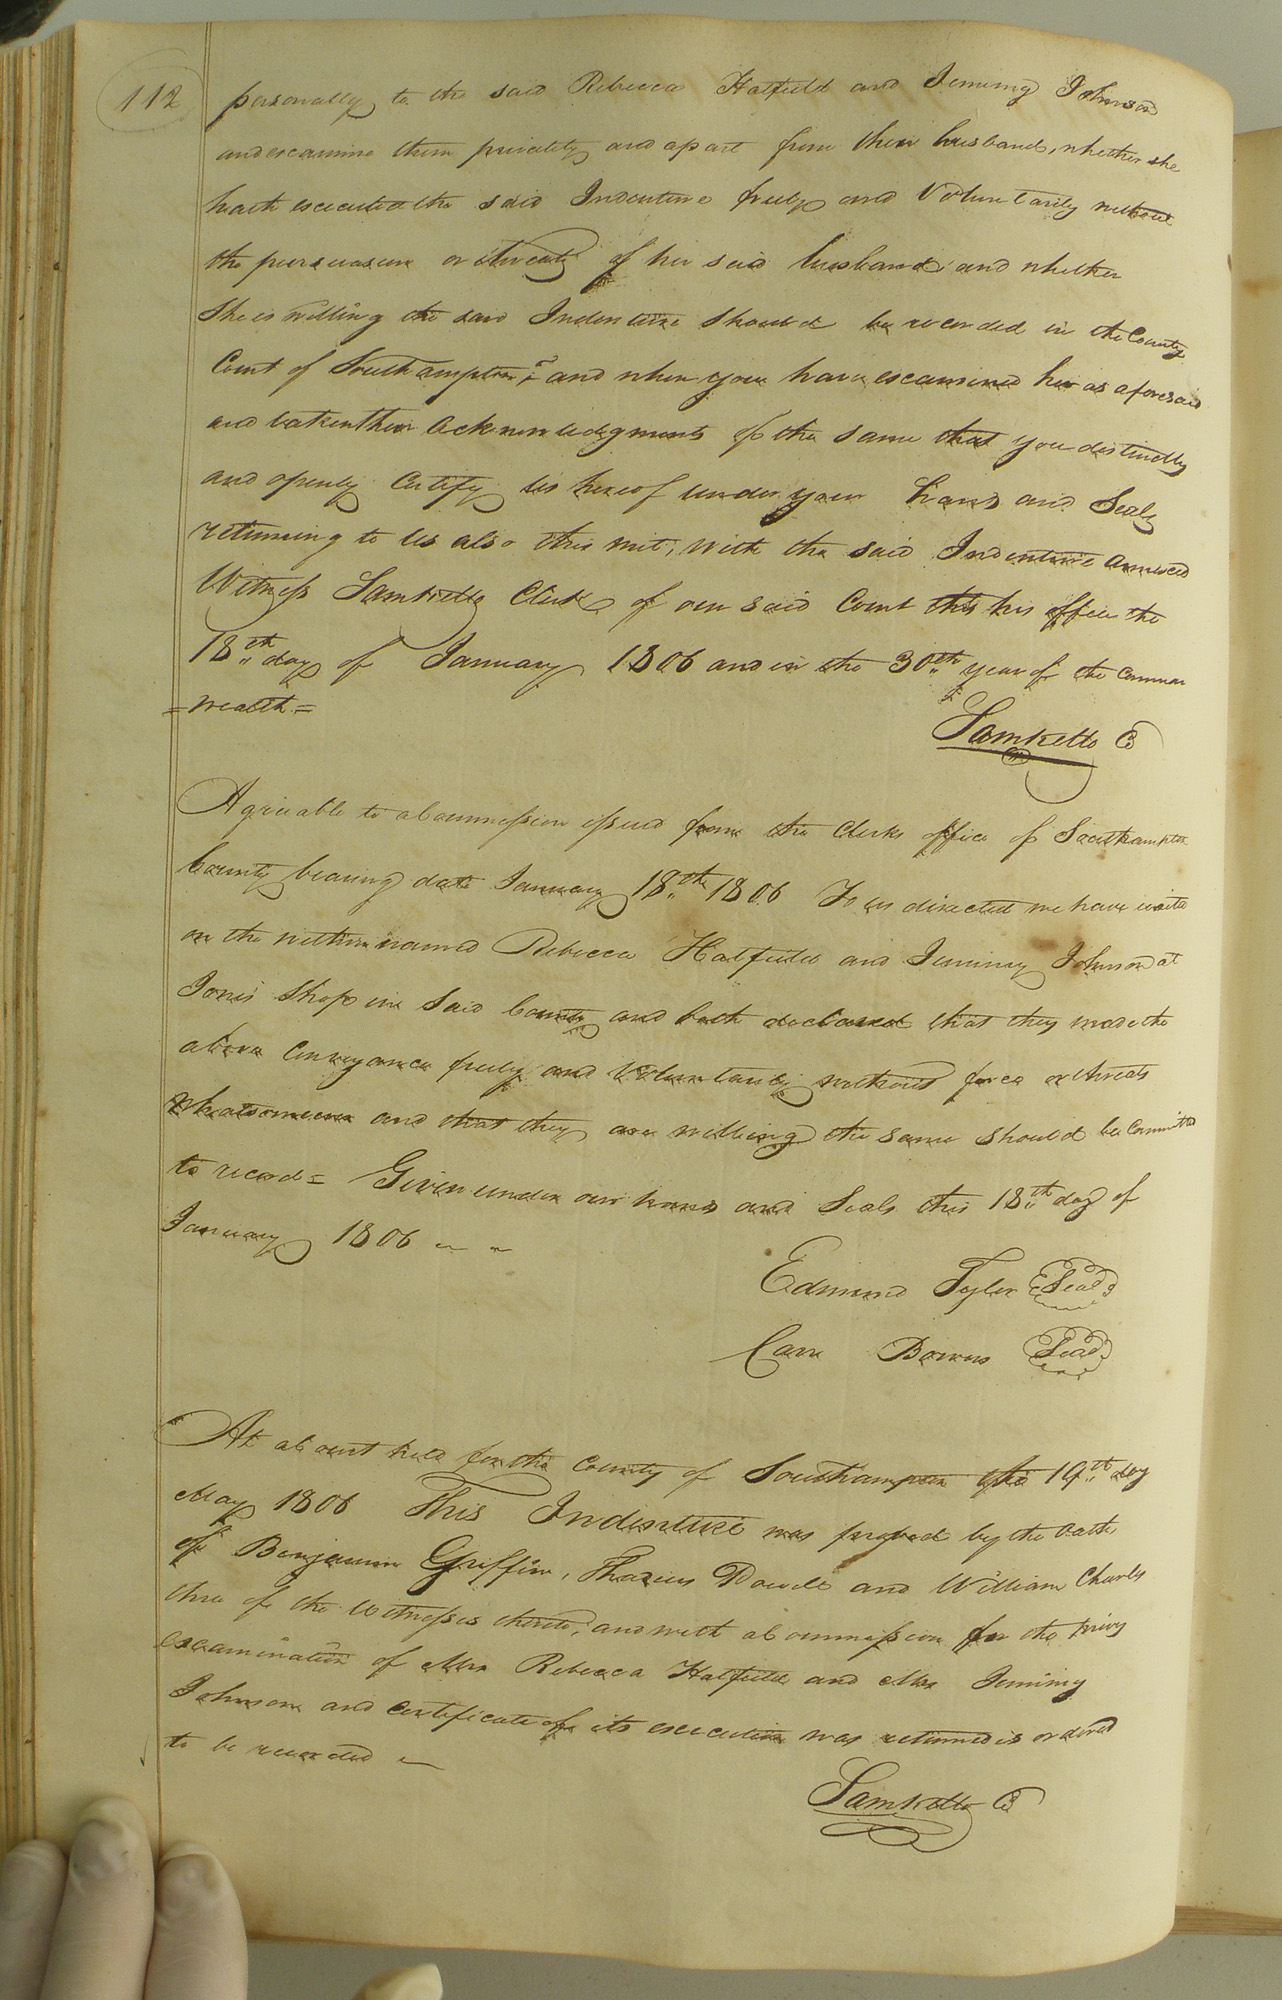 112
personally to the said Rebecca Hatfield and Jenning Johnson
and examine them privately and apart from their husbands, whether she
hath executed the said Indenture freely and Voluntarily without
the persuasion or threats of her said husband and whether
She is willing the said Indenture should be recorded in the County
Court of Southampton? and when you have examined her as aforesaid
and taken their acknowledgments of the same that you distinctly
and openly Certify us hereof under your hand and Seals
returning to us also this writ, with the said Indenture annexed
Witness Samkells Clerk of our said Court this his office the
18th day of January 1806 and in the 30th year of the Common
=wealth=
Samkello C
Agreeable to a Commission issued from the Clerks office of Southampton
County bearing date January 18th 1806 To us directed we have waited
on the within named Rebecca Hatfield and Jenning Johnson at
Jones Shop in Said County and both declared that they made the
above Conveyance freely and Voluntarily without force or threats
whatsoever and that they are willing the same should be Committed
to record = Given under our hands and Seals this 18th day of
January 1806
Edmund Tyler Seal
Carr Bowers Seal
At a Court held for the County of Southampton the 19th day
May 1806 This Indenture was proved by the Oaths
of Benjamin Griffin, and William Charles
three of the Witnesses thereto, and with a Commission for the privy
examination of Mrs Rebecca Hatfield and Mrs Jenning
Johnson and Certificate of its execution was returned is ordered
to be recorded
Samkello C